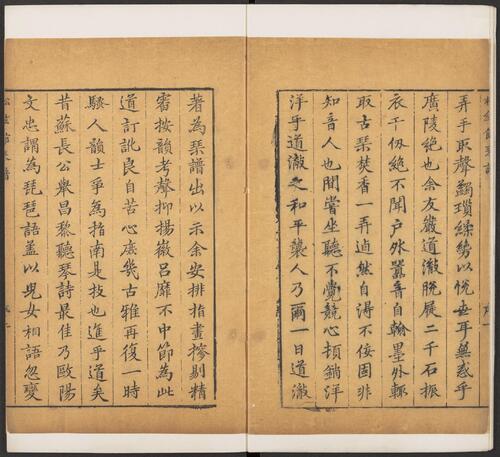 弄手取聲蠲瑣繰勢以悅世耳無惑乎
廣陵絕也余友嚴道澈脫屣二千石振
衣千仞絕不聞戶外囂音自翰墨外輒
取古琴焚香一弄逌然自得不佞固非
知音人也間嘗坐聽不覺競心頓銷洋
洋乎道澈之和平襲人乃爾一日道澈
著為琴譜出以示余安排指畫摻剔精
審按韻考聲抑揚徽呂靡不中節為此
道訂訛良自苦心庶幾古雅再復一時
騷人韻士爭為指南是技也進乎道矣
昔蘇長公舉昌黎聽琴詩最佳乃歐陽
文忠謂為琵琶語蓋以兒女相語忽變